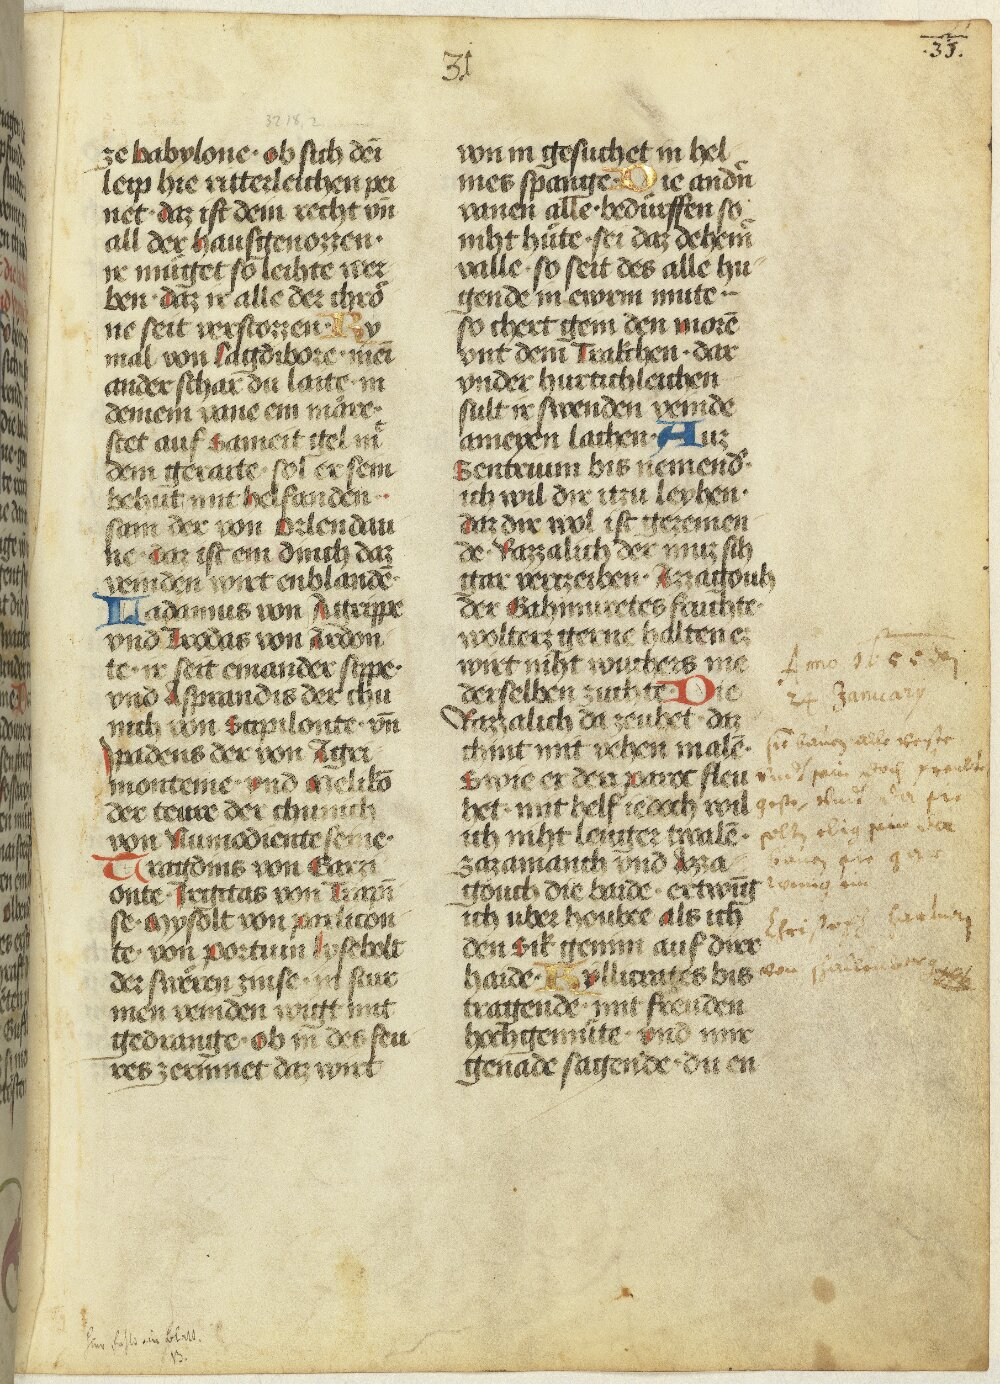 31
.31.
3218,2
ze babylone· ob sich dei
leip hie ritterleichen pei
net· daz ist dem recht vn̄
all der hausgenozzen·
ir müget so leihte wer
ben· daz ir alle der chrō
ne seit verstozzen· Ky
mal von Sagdibore· mei
ander schar du laite· in
deinem vane ein märe·
stet auf Sameit gel mͥ
dem geraite· sol er sein
behüt mit helfanden··
sam der von Orlendau
ne· daz ist ein dinch daz
veinden wirt enblandē·
Ladamus von Agrippe
vnd Arodas von Ardon
te· ir seit einander sippe·
vnd Asprandis der chu
nich von Scipilonte· vn̄
Ipadens der von Agri
monteine· vnd Melikō
der teure der chunich
von Numodiente seine·
Tragdins von Gazzi
onte· Irigitas von Trapn̄
se· Mysolt von parlicon
te· von portuin lysebolt
der swēren zinse· in stur
men veinden wigt mit
gedrange· ob in̄ des feu
res zerinnet daz wirt
von in gesuchet in hel
mes spange· Die andn̄
vanen alle· bedürffen so
niht hüte· sei daz deheinͬ
valle· so seit des alle hu
gende in ewrm mute··
so chert gein den morē
vnt dem Trakchen· dar
vnder hurtichleichen
sult ir swenden veinde
ameyren lachen· Auz
Sentrium bis nemendͦ·
ich wil dir itzu leyhen·
daz dir wol ist gezemen
de· Razzalich der muz sih
gar verzeihen· Azzagouh
der Gahmuretes fruhte·
wolterz gerne halten ez
wirt niht wuchers me
derselben zuchte· Die
Razzalich da zeuhet· daz
chint mit vehen malē·
Swie er den parvc fleu
het· mit helf iedoch wil
ich niht lenger twalē·
zazamanch vnd Azza
gouch die baide· ertwīg
ich uber houbet als ich
den Sik genim auf dirr
haide· Kyllicrates bis
tragende· mit freuden
hochgemüte· vnd mir
genade sagende· du en
Anno 1655 den
24 January